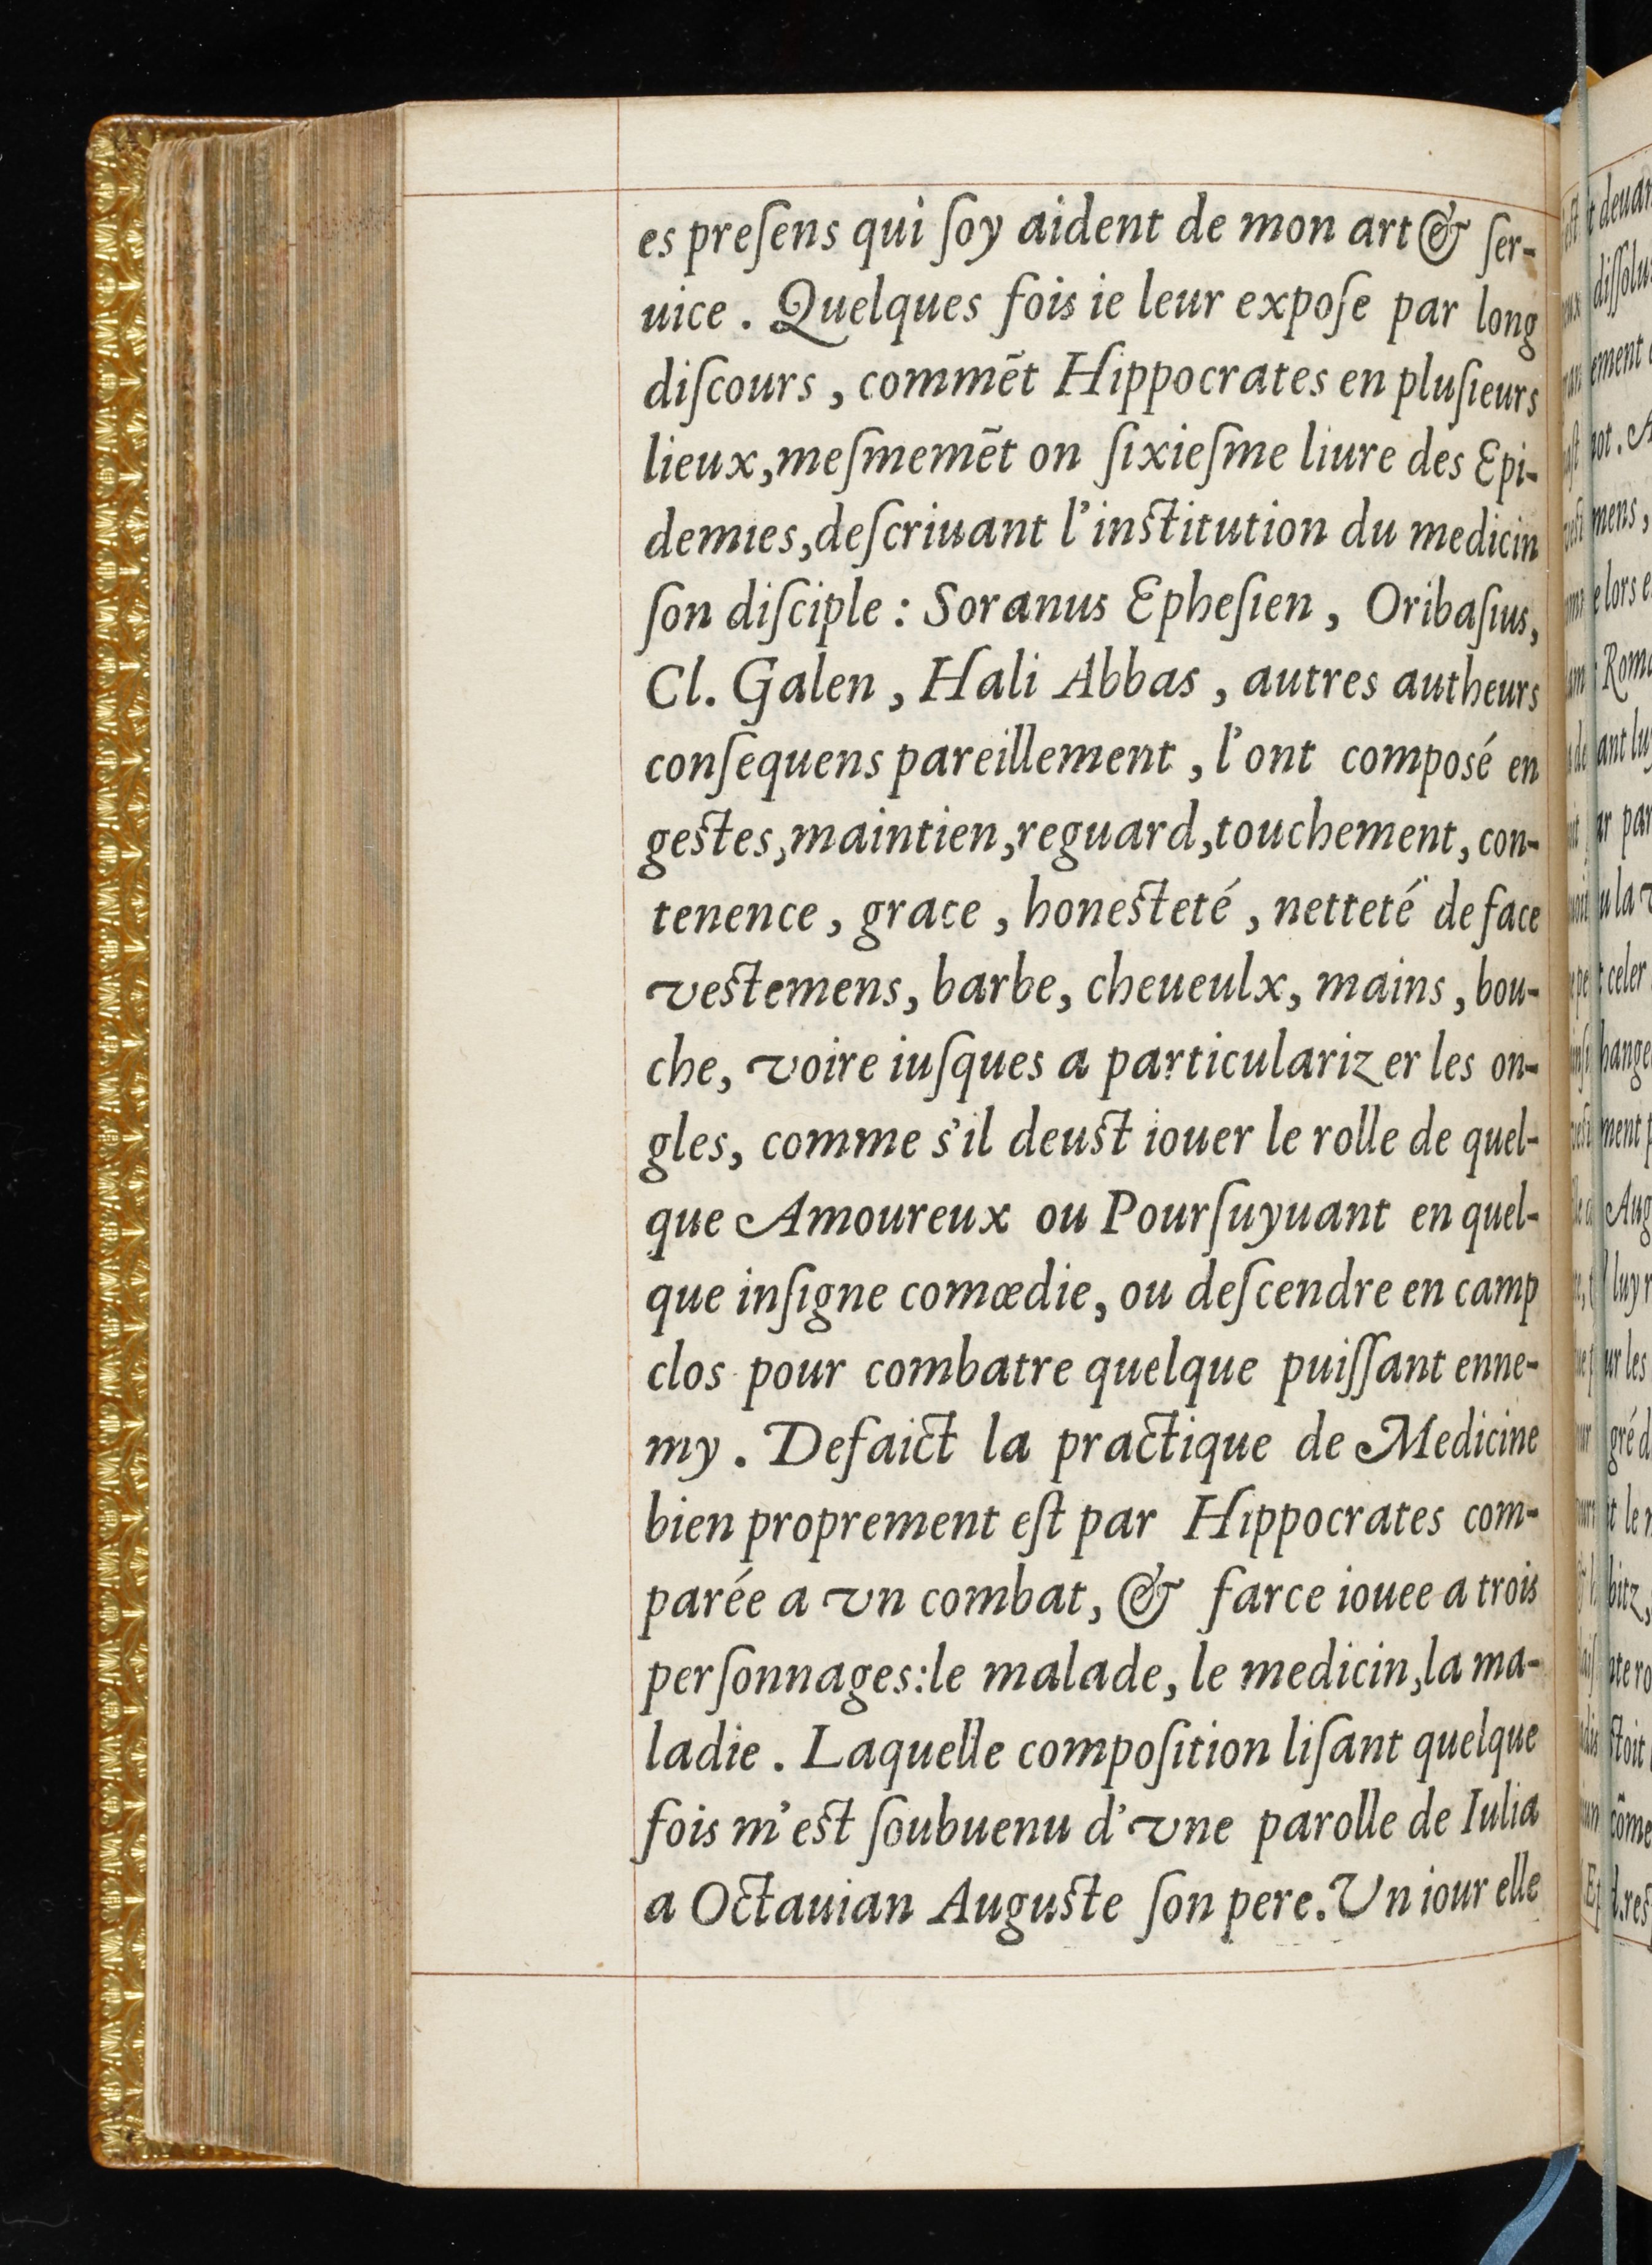 es preſens qui ſoy aident de mon art & ſer-
uice. Quelques fois ie leur expoſe par long
diſcours, commẽt Hippocrates en pluſieurs
lieux, meſmemẽt on ſixieſme liure des Epi-
demies, deſcriuant l'inſtitution du medicin
ſon diſciple: Soranus Epheſien, Oribaſius,
Cl. Galen, Hali Abbas, autres autheurs
conſequens pareillement, l'ont composé en
geſtes, maintien, reguard, touchement, con-
tenence, grace, honeſteté, netteté de face
veſtemens, barbe, cheueulx, mains, bou-
che, voire iuſques a particularizer les on-
gles, comme s'il deuſt iouer le rolle de quel-
que Amoureux ou Pourſuyuant en quel-
que inſigne comœdie, ou deſcendre en camp
clos pour combatre quelque puiſſant enne-
my. Defaict la practique de Medicine
bien proprement eſt par Hippocrates com-
parée a vn combat, & farce iouee a trois
perſonnages: le malade, le medicin, la ma-
ladie. Laquelle compoſition liſant quelque
fois m'eſt ſoubuenu d'vne parolle de Iulia
a Octauian Auguſte ſon pere. Un iour elle